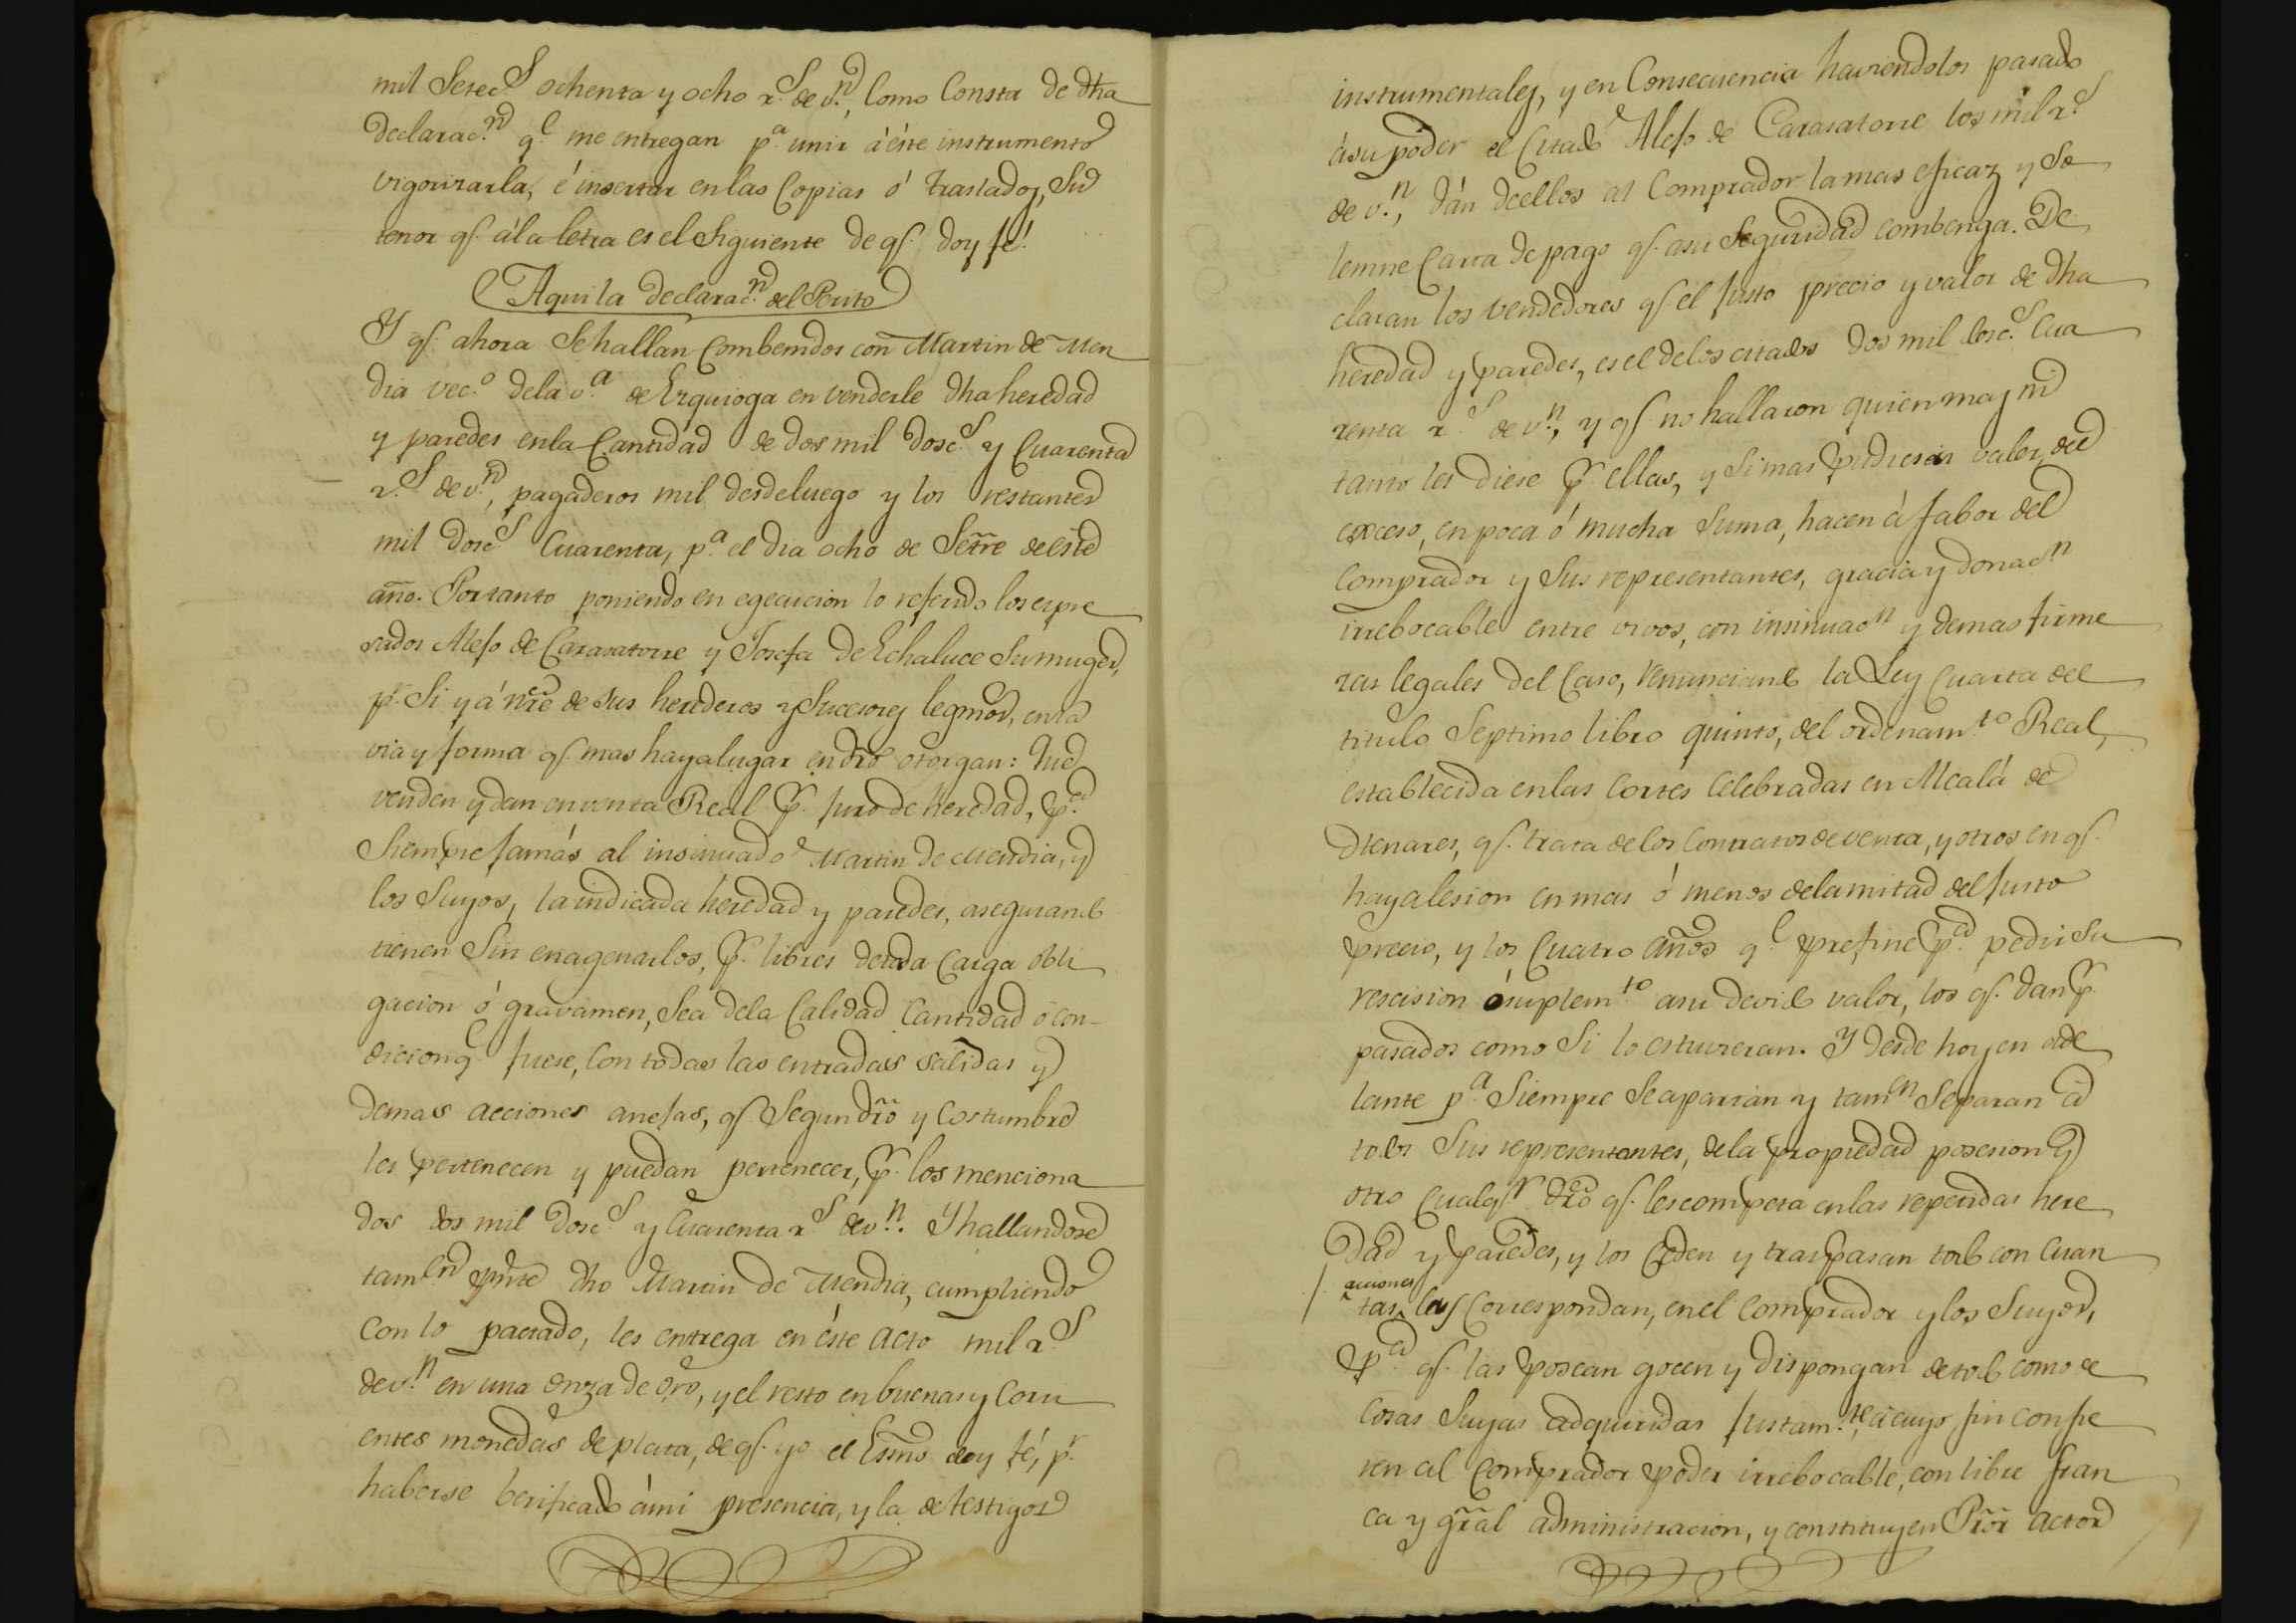 mil Setec.s ochenta y ocho r.s de v.n, como Consta de dha
declarac.n q.e me entregan p.a unir á éste instrumento
vigorizarla, é insertar en las Copias ó traslados, Su
tenor q.e á la letra es el Siguiente de q.e doy fé.
Aqui la declarac.n del Perito
Y q.e ahora Se hallan Combenidos con Martin de Men
dia vec.o de la v.a de Ezquioga en venderle dha heredad
y paredes en la Cantidad de dos mil Dosc.s y Cuarenta
r.s de v.n, pagaderos mil desde luego y los restantes
mil dosc.s Cuarenta, p.a el dia ocho de Setre de este
año. Portanto poniendo en egecucion lo referido los expre
sados Alejo de Carasatorre y Josefa de Echaluce Su muger,
p.r Si y á nre de sus herederos y Sucesores legmos, en la
via y forma q.e mas haya lugar en dro otorgan: Que
venden y dan en venta Real p.r juro de heredad, p.a
Siempre jamás al insinuado Martin de Mendia, y
los Suyos, la indicada heredad y paredes, asegurando
tienen Sin enagenarlos, p.r libres de toda Carga obli
gacion ó gravamen, Sea de la Calidad Cantidad ó con-
dicion q.e fuese, Con todas las entradas salidas y
demas acciones anejas, q.e Segun dro y Costumbre
les pertenecen y puedan pertenecer, p.r los menciona
dos dos mil Dosc.s y Cuarenta r.s de v.n. Y hallandose
tamen pnte dho Martin de Mendia, cumpliendo
Con lo pactado, les entrega en éste Acto mil r.s
de v.n en una Onza de Oro, y el resto en buenas y Corri
entes monedas de plata, de q.e yo el Essno doy fé, p.r
haberse berificado á mi presencia, y la de testigos
instrumentales, y en Consecuencia haviendolos pasado
á su poder el Citado Alejo de Carasatorre los mil r.s
de v.n, dán de ellos al Comprador la mas eficaz y So
lemne Carta de pago q.e a su Seguridad combenga. De
claran los vendedores q.e el justo precio y valor de dha
heredad y paredes, es el de los citados dos mil dosc.s Cua
renta r.s de v.n, y q.e no hallaron quien mas ni
tanto les diese p.r ellas, y Si mas pudiesen valer, del
exceso, en poca ó mucha Suma, hacen á fabor del
Comprador y Sus representantes, gracia y donac.n
irrebocable entre vivos, con insinuac.n y demas firme
zas legales del Caso, renunciando la Ley Cuarta del
titulo Septimo libro quinto, del ordenam.to Real,
establecida en las Cortes Celebradas en Alcalá de
Henares, q.e trata de los Contratos de venta, y otros en q.e
haya lesion en mas ó menos de la mitad del justo
precio, y los Cuatro años q.e prefine p.a pedir Su
rescision ó suplem.to a su devido valor, los q.e dan p.r
pasados como Si lo estuvieran. Y desde hoy en ade
lante p.a Siempre Se apartan y tam.n Separan á
todos Sus representantes, de la propiedad posesion y
otro Cualq.r dro q.e les competa en las repetidas here
dad y paredes, y los Ceden y traspasan todo con Cuan
acciones
tas les Correspondan, en el Comprador y los Suyos,
p.a q.e las posean gocen y dispongan de todo como de
Cosas Suyas adquiridas justam.te, á cuyo fin confie
ren al Comprador poder irrebocable, con libre fran
ca y gral administracion, y constituyen Pror Actor